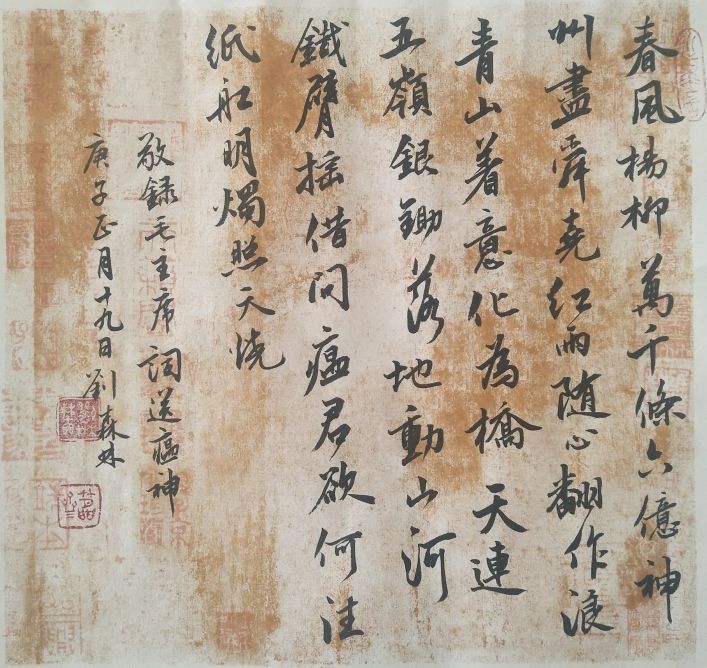 春風楊柳萬千條六億神
州盡舜堯紅雨随心翻作浪
青山着意化為橋 天連
五嶺銀鋤落地動山河
鐵臂摇借问瘟君欲何往
纸船明燭照天燒
敬録毛主席詞送瘟神
庚子正月十九日劉森林